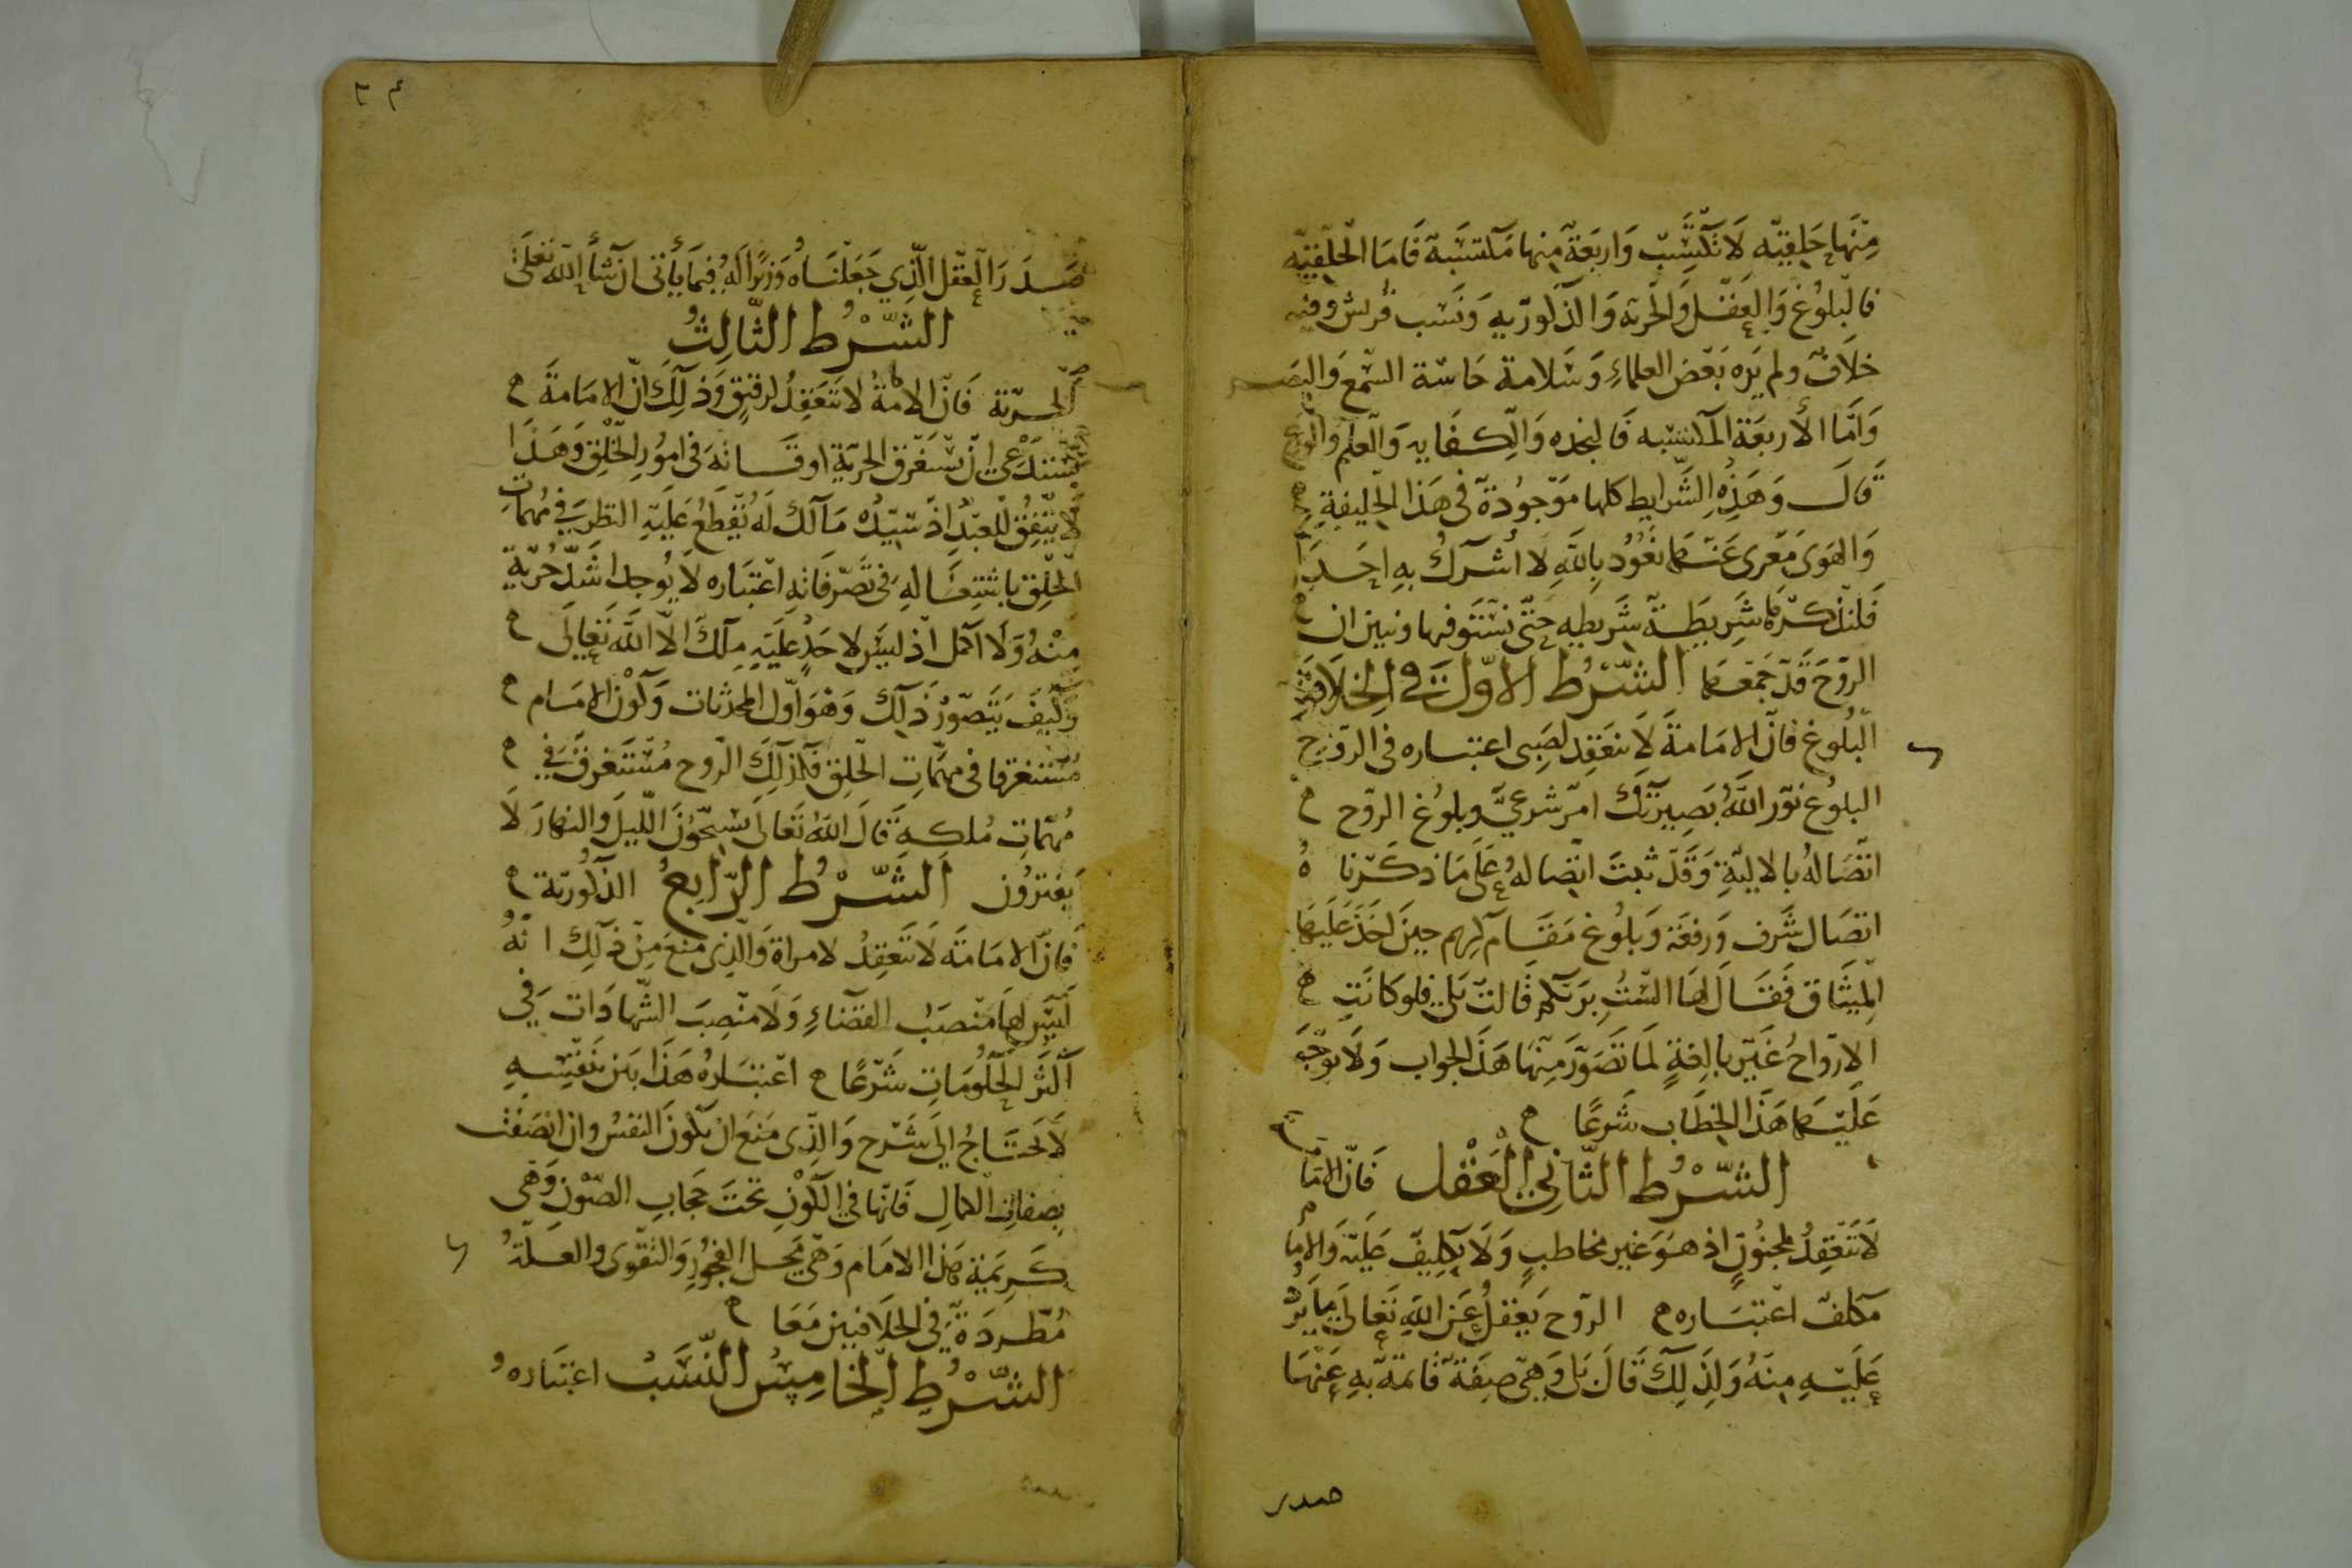 مِنْهَا خَلقِيّه لَا تُكْتَسَبْ وَاربَعَةٌ مِنها مُكتسَبَة فَامَا الخَلْقِيّه
فالبُلُوغُ وَالعَقْل وَالحُرية وَالذكوُريه وَنَسَب قُرَيش وفيه
خلَافٌ ولم يَرَه بَعْض العلماءِ وَسَلامة حَاسّة السّمع وَالبَصَر
وَأمّا الأربعَة المكتسَبه فَالنجده وَالكفَايه وَالعلم والورَع
قَالَ وَهَذِهِ الشّرايط كلها مَوْجُودة في هَذا الخَليفةِ
وَالهَوى مَعَرى عَنهَا نعُوذ بِاللّهِ لا أُشرِكُ بِهِ احَدًا
فَلنَذكرهَا شَرِيطَة شَرِيطه حتّى نَستَوفيها ونبين ان
الرّوحَ قَدْ جَمَعَهَا الشّرْطُ الاوّل في الخِلَافَةِ
البُلُوغ فَانّ الامَامَة لَا تنعَقِد لِصَبى اعتباره في الرّوح
البلوُغ نوّر اللّهُ بَصِيرَتَكَ امْر شرعيّ وبلُوغ الرّوح
اتّصَاله بالاليّةِ وَقَدْ ثبتَ اتّصاله عَلَى مَا ذكَرْنا
اتصَال شَرف وَرفعَة وَبلُوغ مَقَام كريم حينَ اخَذَ عَلَيهَا
المِيثَاق فَقَال لهَا السْتُ بِرَبّكم قَالتْ بَلى فلو كانَتِ
الارْوَاحُ غَيْر بالِغةٍ لمَا تَصَوّرَ مِنْهَا هَذا الجواب وَلا توجّهَ
عَلَيْهَا هَذا الخِطَاب شَرعًا
الشّرْطُ الثّاني العَقْل فَانّ الامَامَة
لَا تَنْعَقِدُ لمجنُونٍ اذ هوَ غير مخاطبٍ وَلَا تكليفَ عَلَيْه وَالامَام
مكلفٌ اعْتبَاره الرّوح يَعْقلُ عَن اللّهِ تعَالَى مَا يَرِدُ
عَلَيْهِ مِنهُ وَلِذَلِكَ قَالَ بَلى وَهِيَ صِفَة قَائمَة بهِ عَنْهَا
صدر
٣٤
صَدَرَ العَقْل الّذي جَعَلنَاهُ وَزيرًا لَهُ فيمَا يَأتى ان شَأ اللّه تعَلى
الشّرْط الثّالِثُ
الحريّة فَانّ الامَامَةُ لا تَنْعَقِدُ لرقيقٍ وَذلِكَ انّ الامَامَةَ
تستَدعِى ان يسْتغرِق الحرية اوقَاتهَ في امُورِ الخَلْق وَهَذا
لا يتّفِقُ للعَبْد اذ سَيّده مَالك لَه يَقطَعُ عَلَيْهِ النظر في مُهِمّاتِ
الخَلْق باشتغَالهِ في تَصَرّفاتِه اعْتبَاره لَا يُوجد اشَدّ حُريّة
مِنْهُ وَلَا اكمل اذ ليسَ لاحَدٍ عَلَيهِ مِلكٌ الّا اللّهَ تَعَالَى
وَكيفَ يَتَصَوّرُ ذلِك وَهُوَ أوّل المحدَثات وَكَوْن الامَام
مُستغرقا في مهمّاتِ الخَلْق فكَذلِكَ الرّوح مُسْتَغرِق في
مُهِمّاتِ مُلكِهِ قَالَ اللّهُ تَعَالَى يُسَبّحُونَ اللّيلَ وَالنهارَ لَا
يَفترُون الشَّرْط الرّابعُ الذكُورية
فَانّ الامَامَةَ لَا تَنْعَقِدُ لامراة وَالّذِى مَنَعَ مِنْ ذلِكَ انّهُ
لَيْسَ لهَا مَنْصَبُ القضَاءِ وَلَا مَنْصِبَ الشّهادَات في
اكثر الحكُومَاتِ شَرْعًا اعْتبَارهُ هَذا بَين بنَفْسِهِ
لَا يحتَاجُ الى شَرْح وَالّذِى مَنَعَ ان تكُونَ النفسُ وان اتّصَفت
بصفات الكمال فَانّها في الكَوْنِ تحتَ حجَابِ الصّوْنِ وَهي
كَرِيمَة هَذا الامَام وَهي مَحَل الفجُورِ وَالتقوَى والعلّةُ
مُطّرِدَة في الخلَافتين مَعًا
الشّرْطُ الخامِسُ النّسَبُ اعتبَارهُ